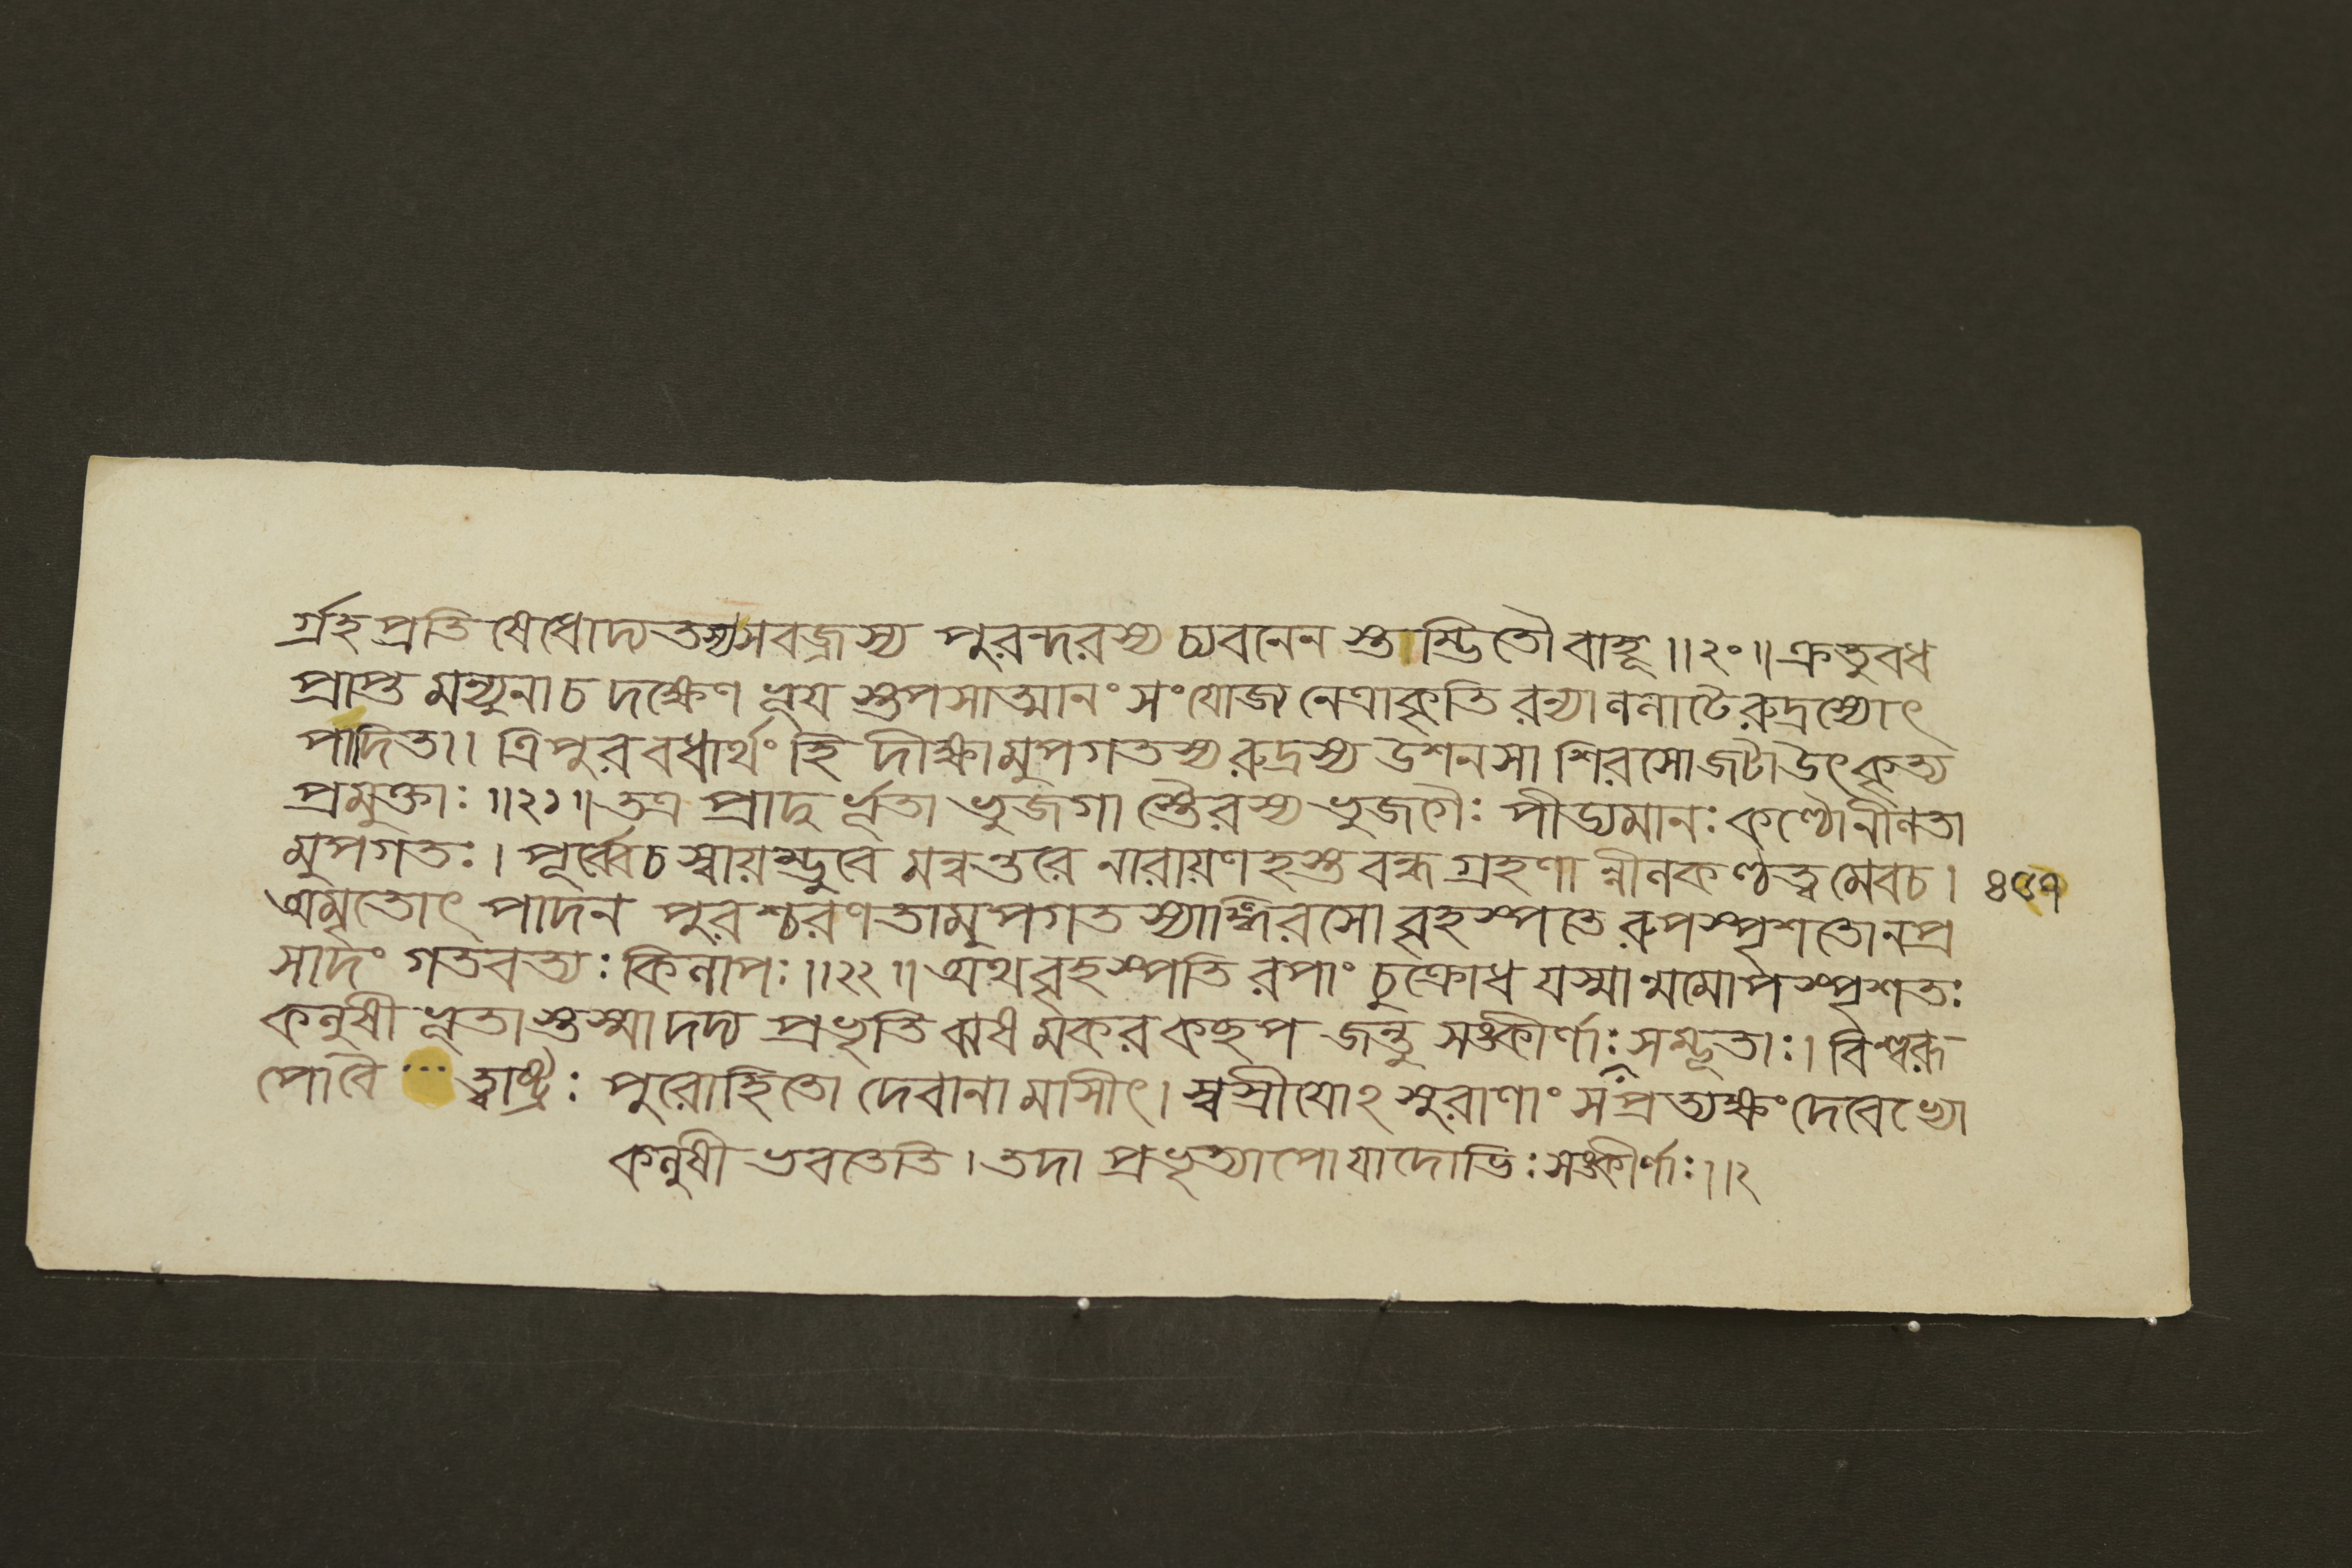 র্গ্রহপ্রতিষেধোদ্যতস্যসবজ্রস্য পুরন্দরস্য চ্যবনেন স্তাম্ভিতৌ বাহূ ॥২০॥ ক্রতুবধ
প্রাপ্ত মন্যুনাচ দক্ষেণ ভূয স্তপসাত্মানং সংযোজ্য নেত্রাকৃতি রন্যা ললাটে রুদ্রস্যোৎ
পাদিতা। ত্রিপুরবধার্থং হি দীক্ষামুপগতস্য রুদ্রস্য উশনসা শিরসোজটাউৎকৃত্য
প্রমুক্তাঃ ॥২১॥ তত্র প্রাদুর্ভূতা ভুজগা স্তৈরস্য ভুজগৈঃ পীড্যমানঃ কণ্ঠোনীলতা
মুপগতঃ। পূর্ব্বেচ স্বায়ম্ভুবে মন্বন্তরে নারায়ণহস্তবন্ধগ্রহণা ন্নীলকণ্ঠত্বমেবচ। ৪৫৭
অমৃতোৎপাদন পুরশ্চরণতামুপগতস্যাঙ্গিরসো বৃহস্পতে রুপস্পৃশতোনপ্র
সাদং গতবত্যঃ কিলাপঃ ॥২২॥ অথবৃহস্পতি রপাং চুক্রোধ যস্মান্মমোপস্পৃশতঃ
কলুষীভূতাস্তস্মাদদ্য প্রভৃতি ঝষমকরকচ্ছপ জন্তু সঙ্কীর্ণাঃ সম্ভূতাঃ। বিশ্বরূ
পোবৈ ... ত্বাষ্ট্রঃ পুরোহিতো দেবানামাসীৎ। স্বস্রীযোঽসুরাণাং সপ্রত্যক্ষং দেবেভ্যো
কলুষী ভবতেতি। তদা প্রভৃত্যাপো যাদোভিঃ সঙ্কীর্ণাঃ॥২